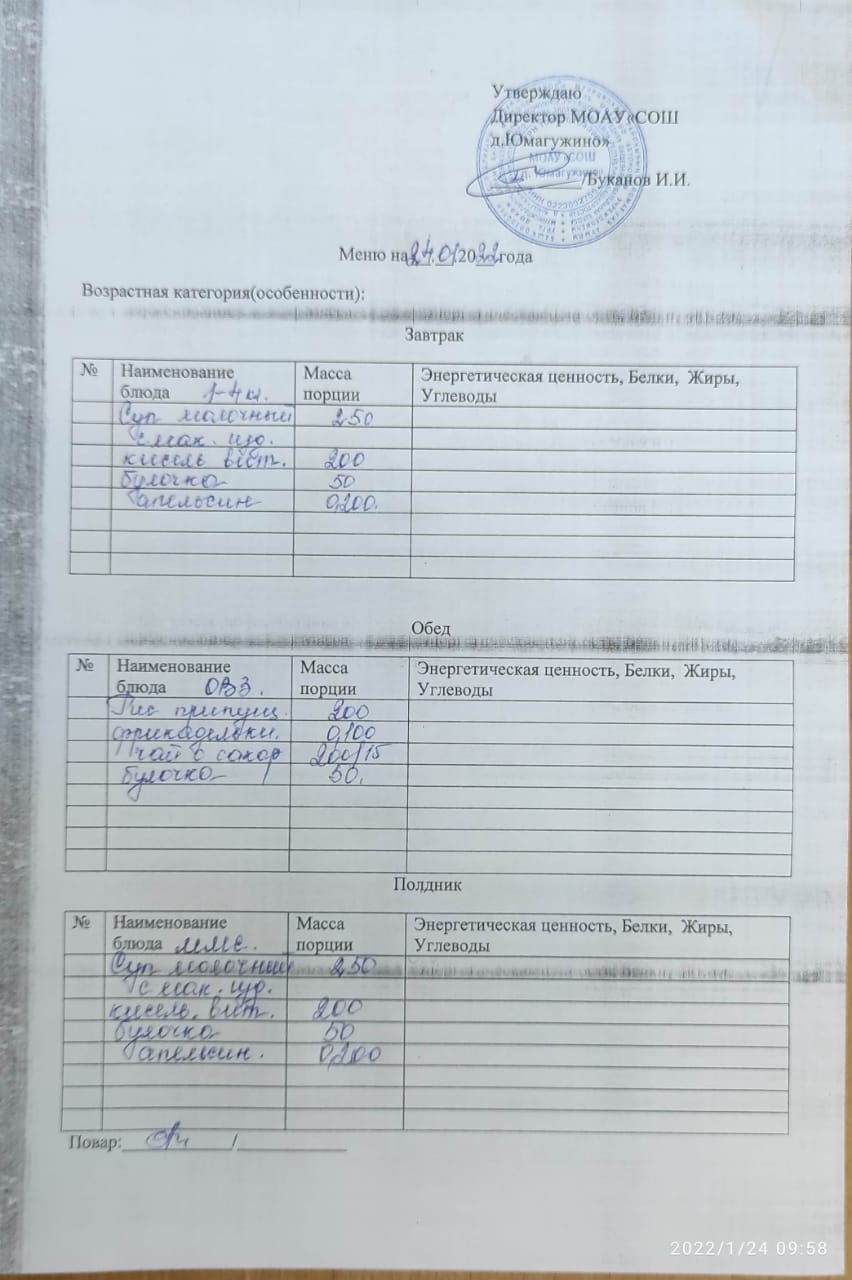 Утверждаю
Директор МОАУ«СОШ
д.Юмагужино»
МОАУ «СОШ
д. Юмагужино»
/Буканов И.И.
Меню на 24.01.2022 года
Возрастная категория(особенности):
Завтрак
№ Наименование блюда 1-4 кл. Масса порции Энергетическая ценность, Белки, Жиры, Углеводы
Суп молочный 250
с мак. изд.
кисель вит. 200
булочка 50
апельсин 0,200.
Обед
№ Наименование блюда ОВЗ. Масса порции Энергетическая ценность, Белки, Жиры, Углеводы
Рис припущ. 200
фрикадельки. 0,100
чай с сахар 200/15
булочка 50.
Полдник
№ Наименование блюда ММС. Масса порции Энергетическая ценность, Белки, Жиры, Углеводы
Суп молочный 250
с мак. изд.
кисель. вит. 200
булочка 50
апельсин. 0,200
Повар: /
2022/1/24 09:58